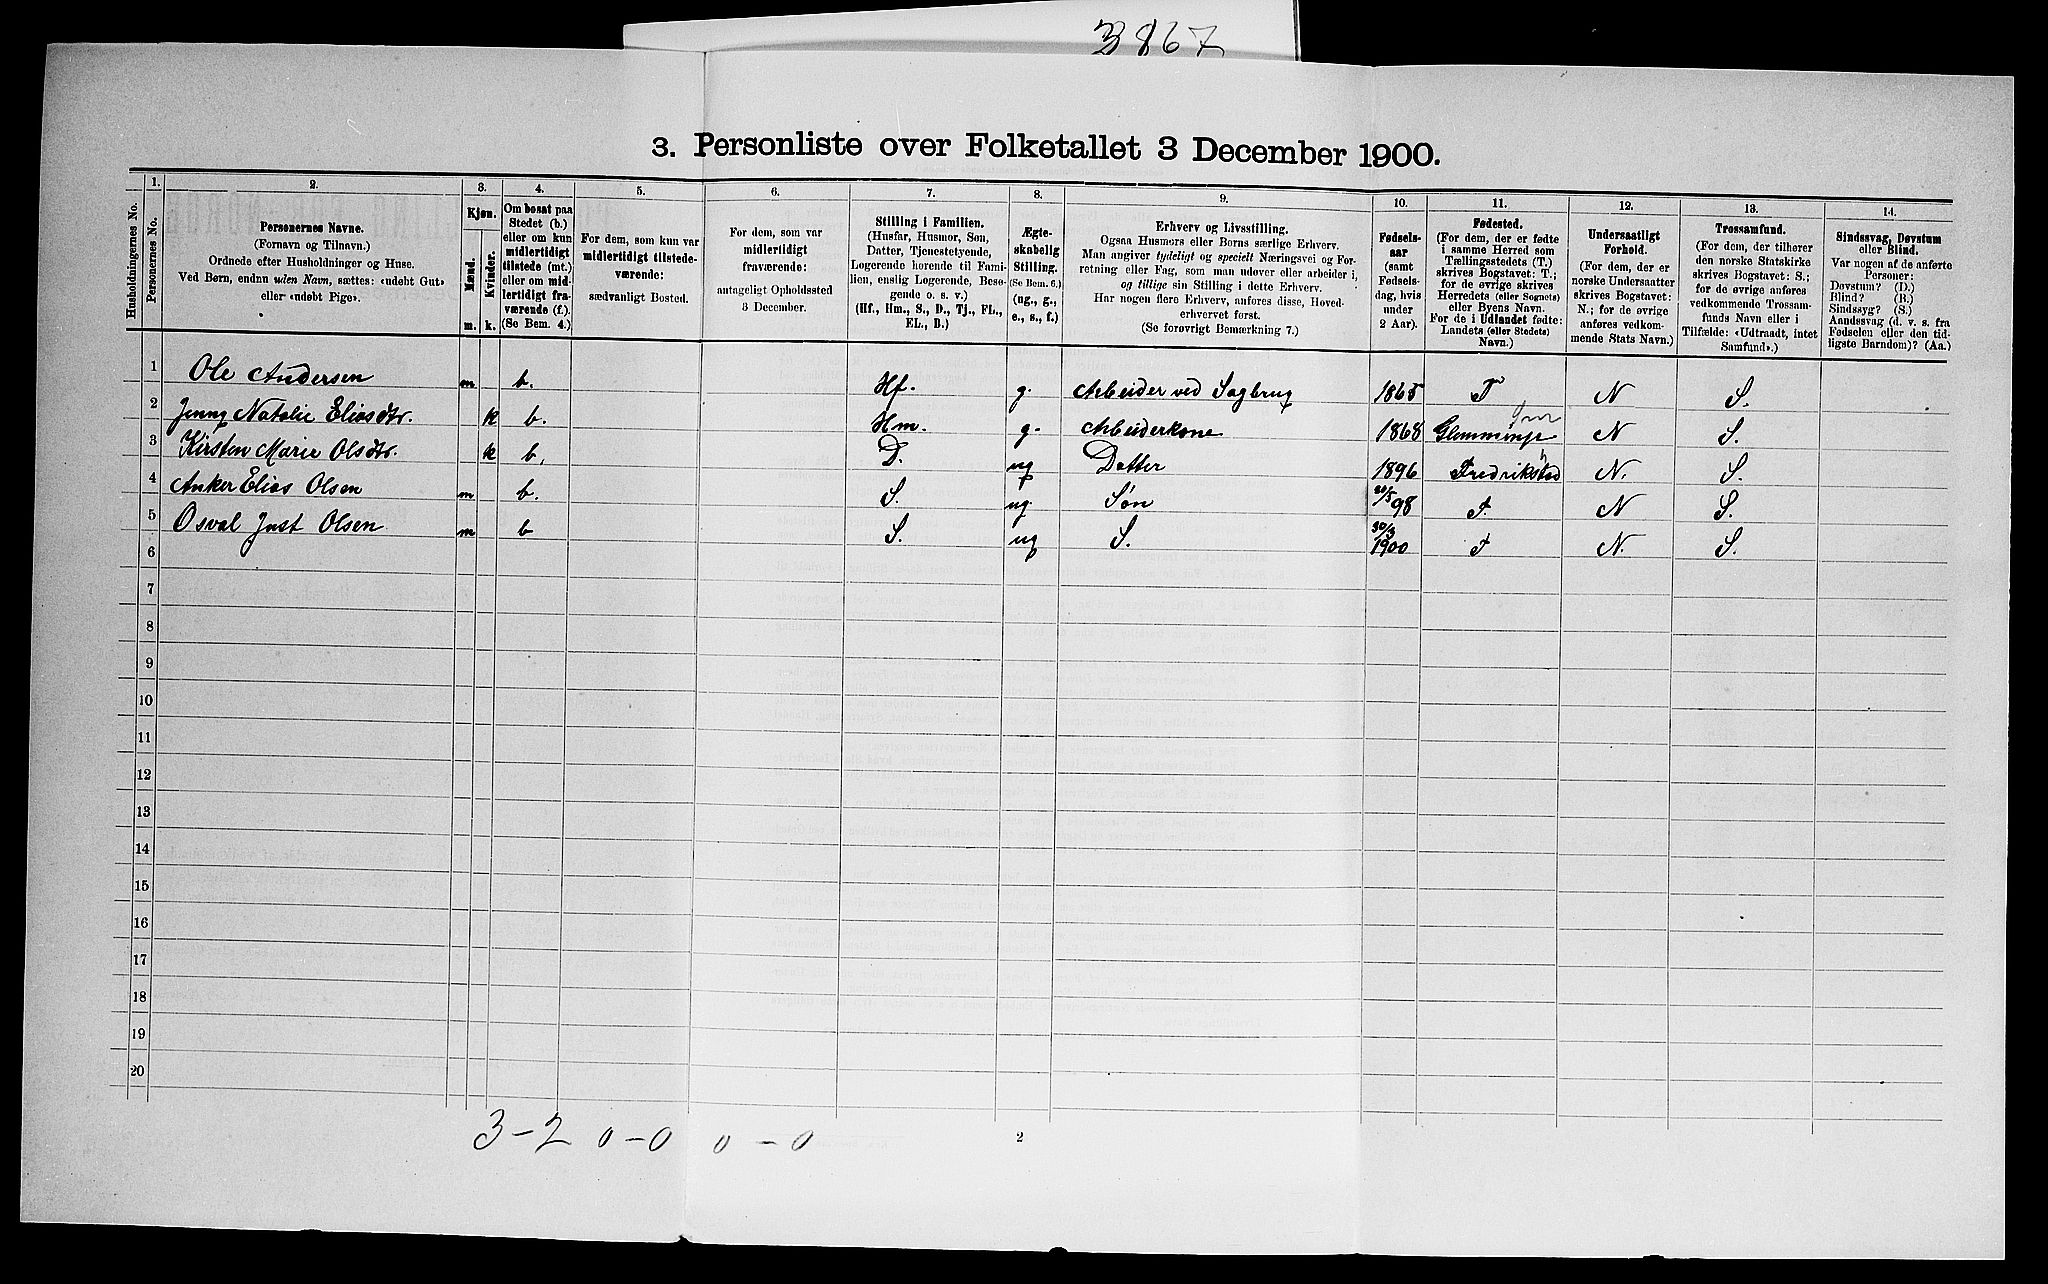 3867
3. Personliste over Folketallet 3 December 1900.
Husholdningernes No.
1.
Personernes No.
2.
Personernes Navne.
(Fornavn og Tilnavn.)
Ordnede efter Husholdninger og Huse.
Ved Børn, endnu uden Navn, sættes: «udøbt Gut»
eller «udøbt Pige».
3.
Kjøn.
Mænd.
Kvinder.
m.
k.
4.
Om bosat paa
Stedet (b.)
eller om kun
midlertidigt
tilstede (mt.)
eller om mid-
lertidigt fra-
værende (f.).
(Se Bem. 4.)
5.
For dem, som kun var
midlertidigt tilstede-
værende:
sædvanligt Bosted.
6.
For dem, som var
midlertidigt
fraværende:
antageligt Opholdssted
3 December.
7.
Stilling i Familien.
(Husfar, Husmor, Søn,
Datter, Tjenestetyende,
Logerende hørende til Fami-
lien, enslig Logerende, Besø-
gende o. s. v.)
(Hf., Hm., S., D., Tj., FL.,
EL., B.)
8.
Ægte-
skabelig
Stilling.
(Se Bem. 6.)
(ug., g.,
e., s., f.)
9.
Erhverv og Livsstilling.
Ogsaa Husmors eller Børns særlige Erhverv.
Man angiver tydeligt og specielt Næringsvei og For-
retning eller Fag, som man udøver eller arbeider i,
og tillige sin Stilling i dette Erhverv.
Har nogen flere Erhverv, anføres disse, Hoved-
erhvervet først.
(Se forøvrigt Bemærkning 7.)
10.
Fødsels-
aar
(samt
Fødsels-
dag, hvis
under
2 Aar).
11.
Fødested.
(For dem, der er fødte
i samme Herred som
Tællingsstedets (T.)
skrives Bogstavet: T.;
for de øvrige skrives
Herredets (eller Sognets)
eller Byens Navn.
For de i Udlandet fødte:
Landets (eller Stedets)
Navn.)
12.
Undersaatligt
Forhold.
(For dem, der er
norske Undersaatter
skrives Bogstavet:
N.; for de øvrige
anføres vedkom-
mende Stats Navn.)
13.
Trossamfund.
(For dem, der tilhører
den norske Statskirke
skrives Bogstavet: S.;
for de øvrige anføres
vedkommende Trossam-
funds Navn eller i
Tilfælde: «Udtraadt, intet
Samfund».)
14.
Sindssvag, Døvstum
eller Blind.
Var nogen af de anførte
Personer:
Døvstum? (D.)
Blind? (B.)
Sindssyg? (S.)
Aandssvag (d. v. s. fra
Fødselen eller den tid-
ligste Barndom)? (Aa.)
1 Ole Andersen m b. Hf. g. Arbeider ved Sagbrug 1865 T N S.
2 Jenny Natalie Eliasdtr. k b. Hm. g. Arbeiderkone 1868 Glemminge N S.
3 Kirsten Marie Olsdtr. k b. D. ug Datter 1896 Fredrikstad N. S.
4 Anker Elias Olsen m b. S. ug. Søn 20/5 98 T. N S.
5 Osval Just Olsen m b S. ug S. 30/3 1900 T N. S.
6
7
8
9
10
11
12
13
14
15
16
17
18
19
20
3 - 2 0 - 0 0 - 0
2